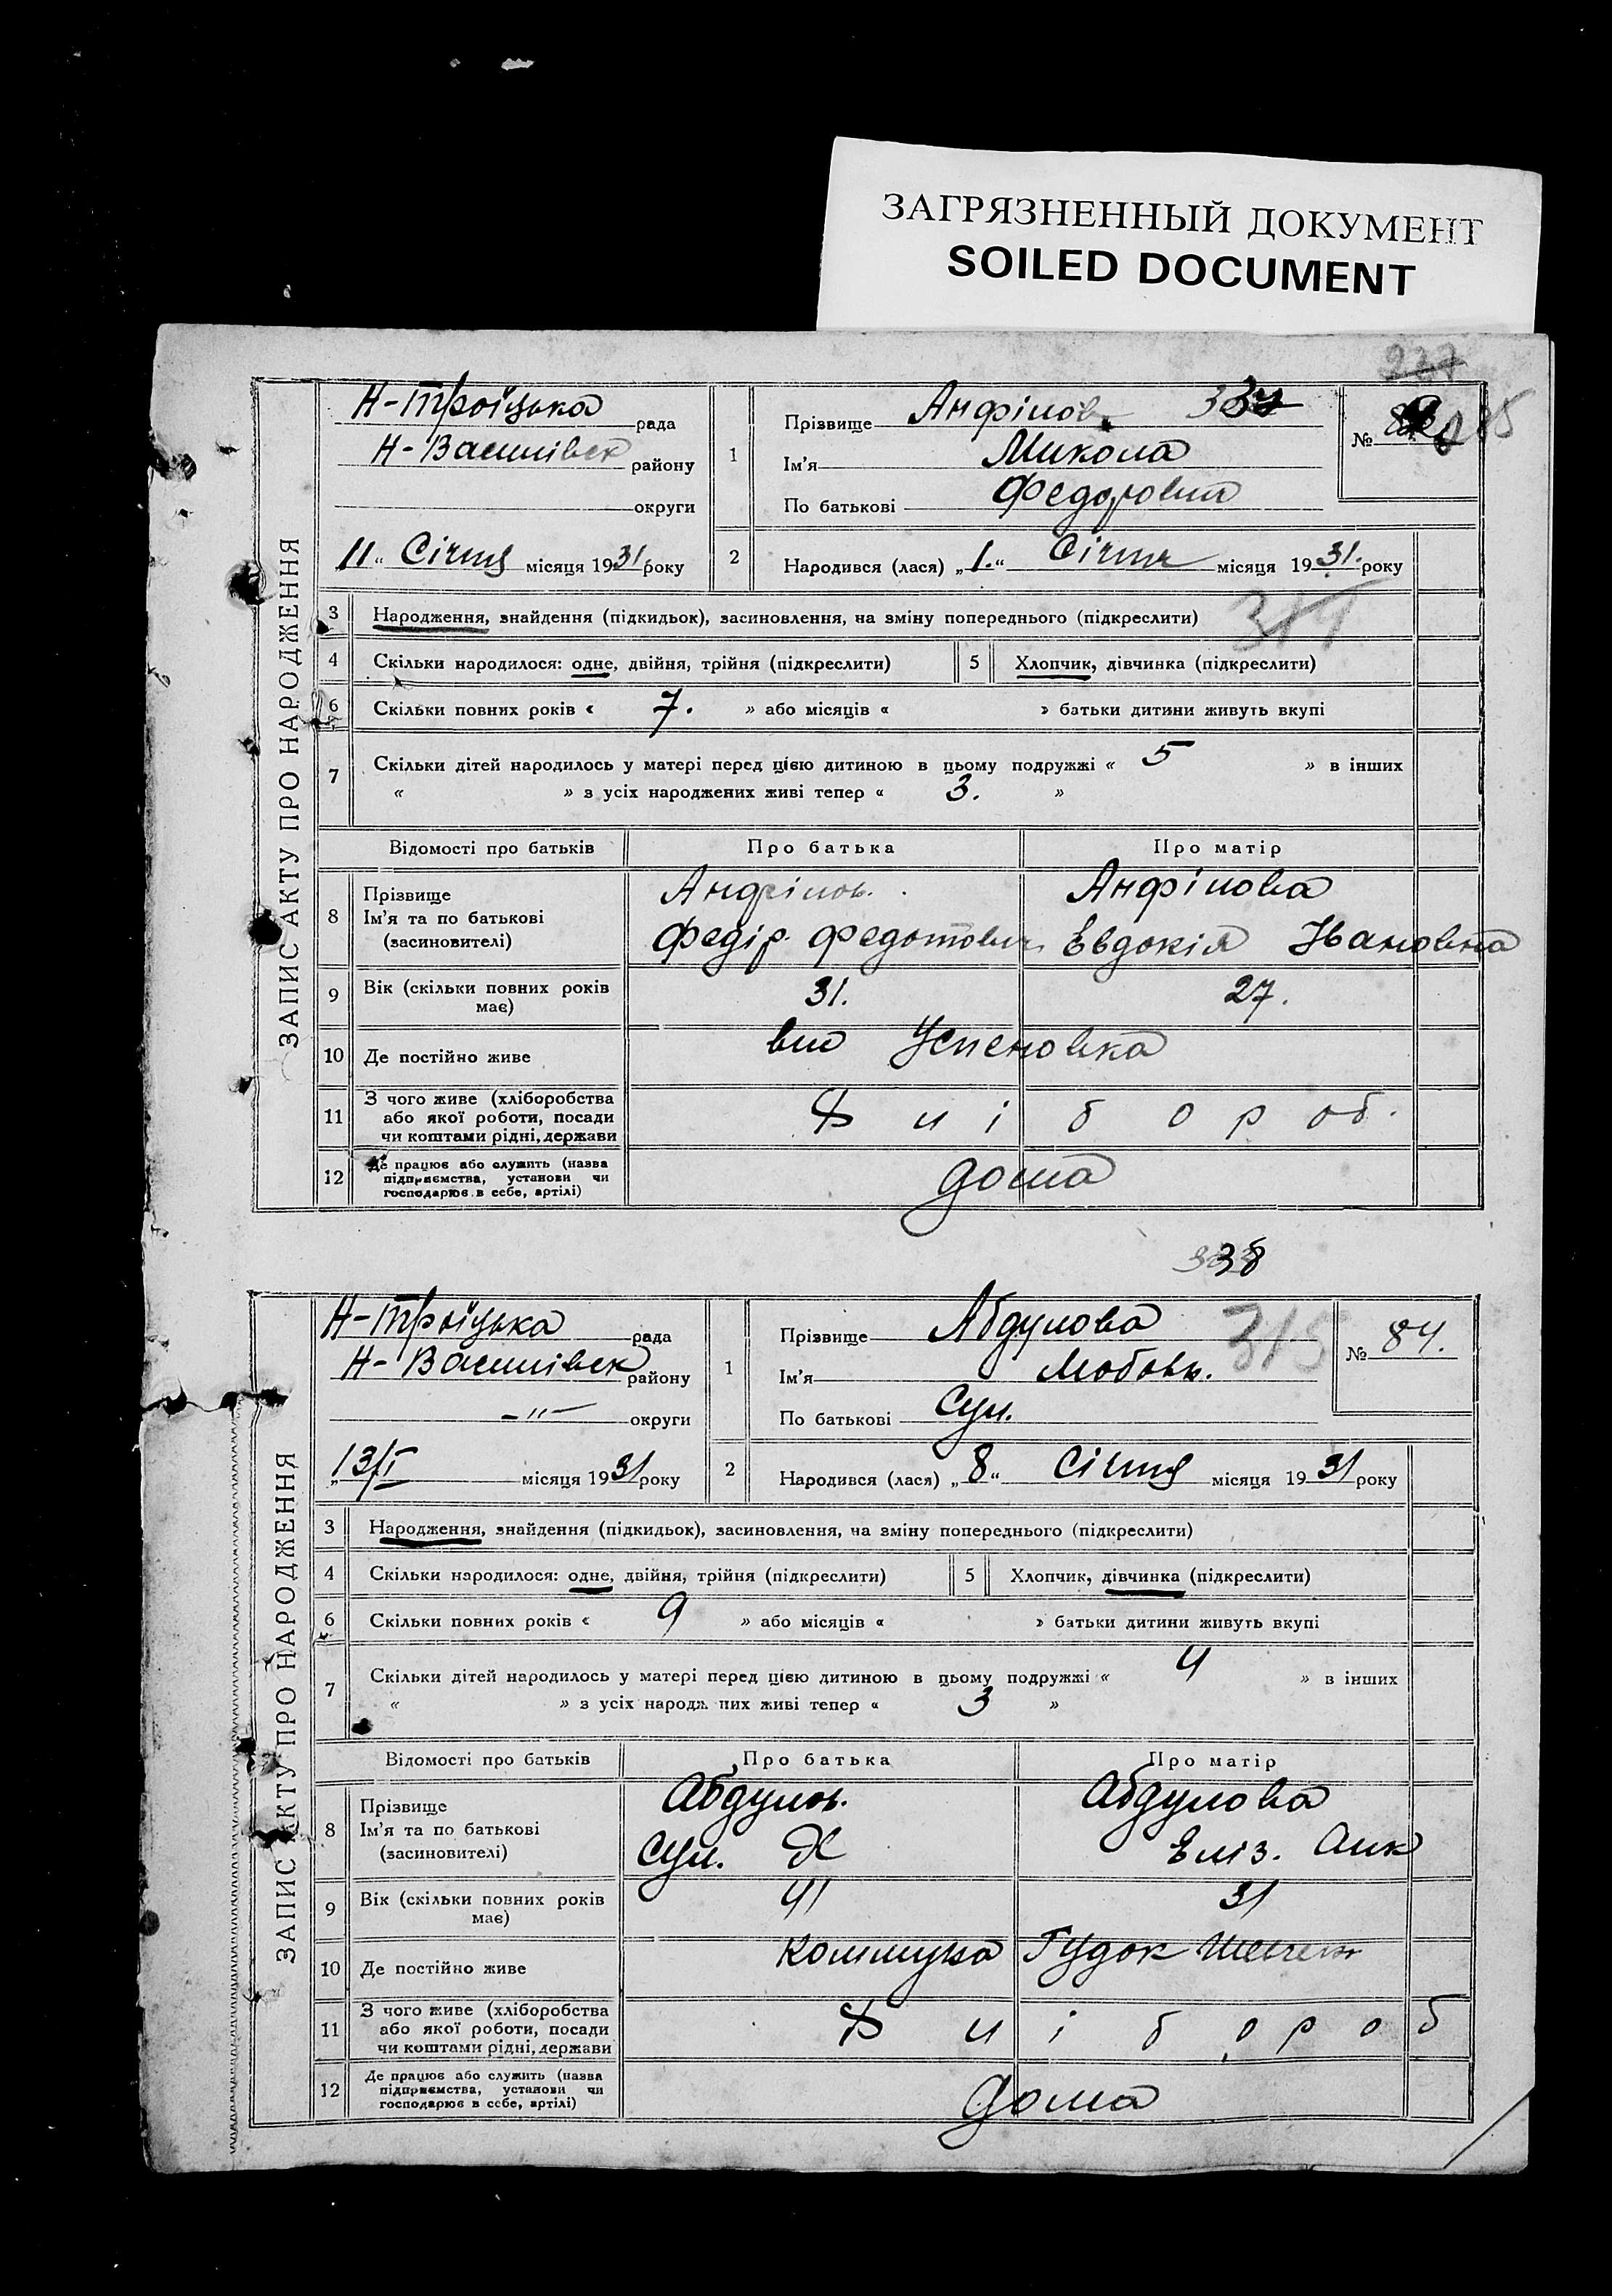 ЗАГРЯЗНЕННЫЙ ДОКУМЕНТ
SOILED DOCUMENT
ЗАПИС АКТУ ПРО НАРОДЖЕННЯ
Н-Троїцька рада
Н-Василівск району
округи
"11" Січня місяця 1931 року
1 Прізвище Анфілов
Ім'я Микола
По батькові Федорович
№
2 Народився (лася) „1.“ Січня місяця 1931. року
314
3 Народження, знайдення (підкидьок), засиновлення, на зміну попереднього (підкреслити)
4 Скільки народилося: одне, двійня, трійня (підкреслити)
5 Хлопчик, дівчинка (підкреслити)
6 Скільки повних років « 7. » або місяців « » батьки дитини живуть вкупі
7 Скільки дітей народилось у матері перед цією дитиною в цьому подружжі « 5 » в інших
« » з усіх народжених живі тепер « 3. »
Відомості про батьків Про батька Про матір
8 Прізвище Анфілов. Анфілова
Ім'я та по батькові
(засиновителі) Федір Федотович Евдокія Івановна
9 Вік (скільки повних років має) 31. 27.
10 Де постійно живе Успеновка
11 З чого живе (хліборобства
або якої роботи, посади
чи коштами рідні, держави
Хлібороб.
12 Де працює або служить (назва
підприємства, установи чи
господарює в себе, артілі)
дома
338
ЗАПИС АКТУ ПРО НАРОДЖЕННЯ
Н-Троїцька рада
Н-Василівск району
-"- округи
„13/I місяця 1931 року
1 Прізвище Абдулова
315
Ім'я Любовь.
По батькові Сул.
№ 84.
2 Народився (лася) „8“ Січня місяця 1931 року
3 Народження, знайдення (підкидьок), засиновлення, на зміну попереднього (підкреслити)
4 Скільки народилося: одне, двійня, трійня (підкреслити)
5 Хлопчик, дівчинка (підкреслити)
6 Скільки повних років « 9 » або місяців « » батьки дитини живуть вкупі
7 Скільки дітей народилось у матері перед цією дитиною в цьому подружжі « 4 » в інших
« » з усіх народж них живі тепер « 3 »
Відомості про батьків Про батька Про матір
8 Прізвище Абдулов. Абдулова
Ім'я та по батькові
(засиновителі) Сул. Х Еліз.
9 Вік (скільки повних років має) 41 31
10 Де постійно живе Коммуна Гудок
11 З чого живе (хліборобства
або якої роботи, посади
чи коштами рідні, держави
Хлібороб
12 Де працює або служить (назва
підприємства, установи чи
господарює в себе, артілі)
дома